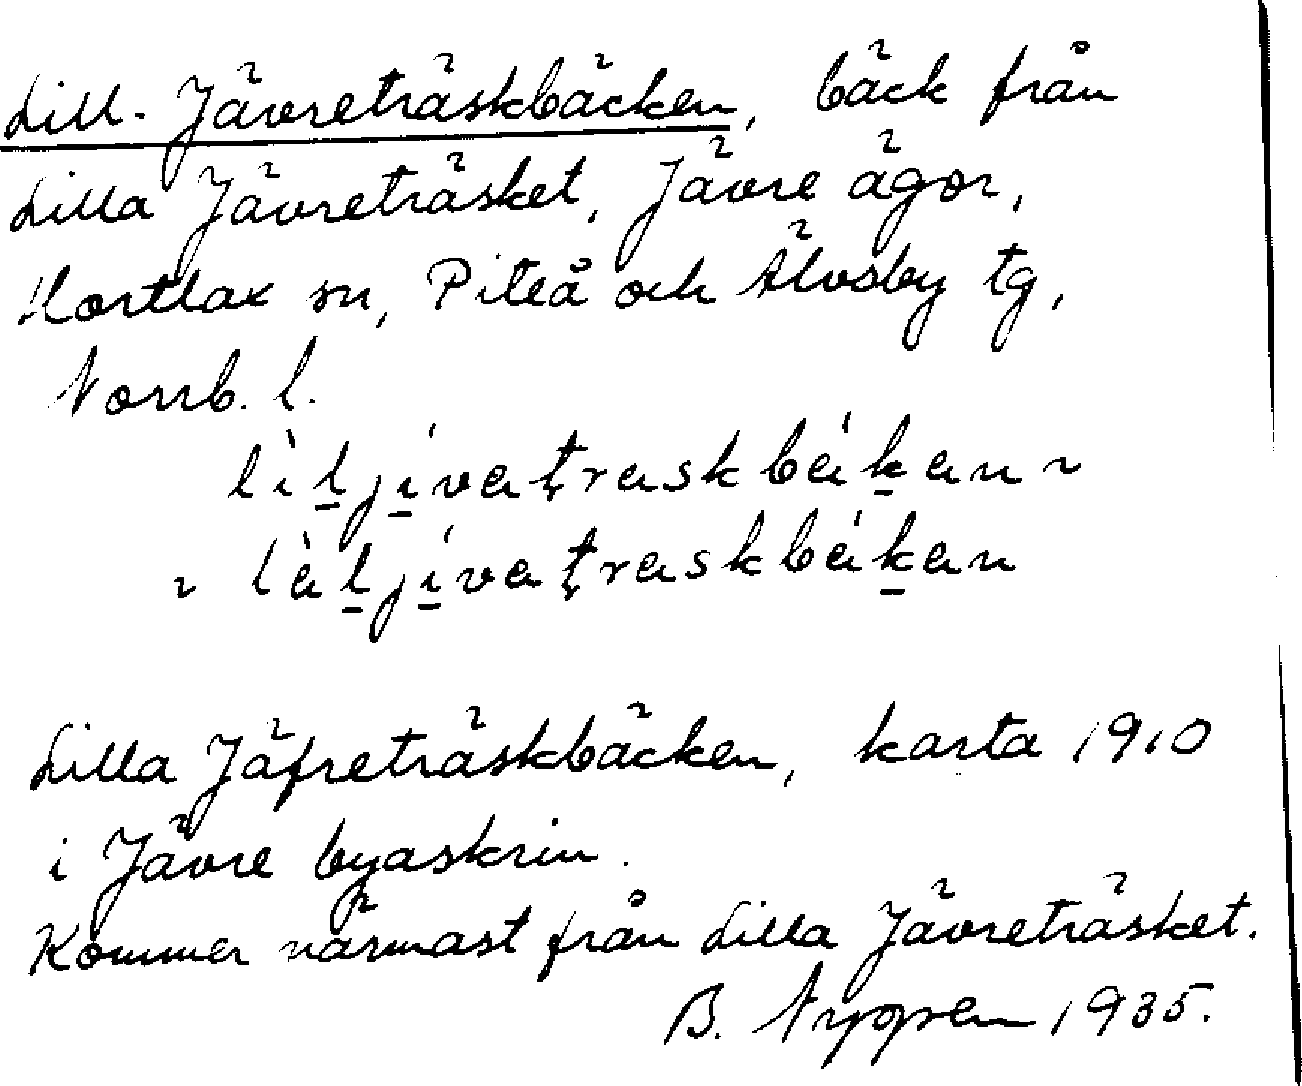 Lill-Jävreträskbäcken, bäck från
Lilla Jävreträsket, Jävre ägor,
Hortlax sn, Piteå och Älvsby tg,
Norrb. l.
lìljívatraskbákan ~
~ làljívatraskbákan
Lilla Jäfreträskbäcken, karta 1910
i Jävre byaskrin.
Kommer närmast från Lilla Jävreträsket.
B. Nygren 1935.